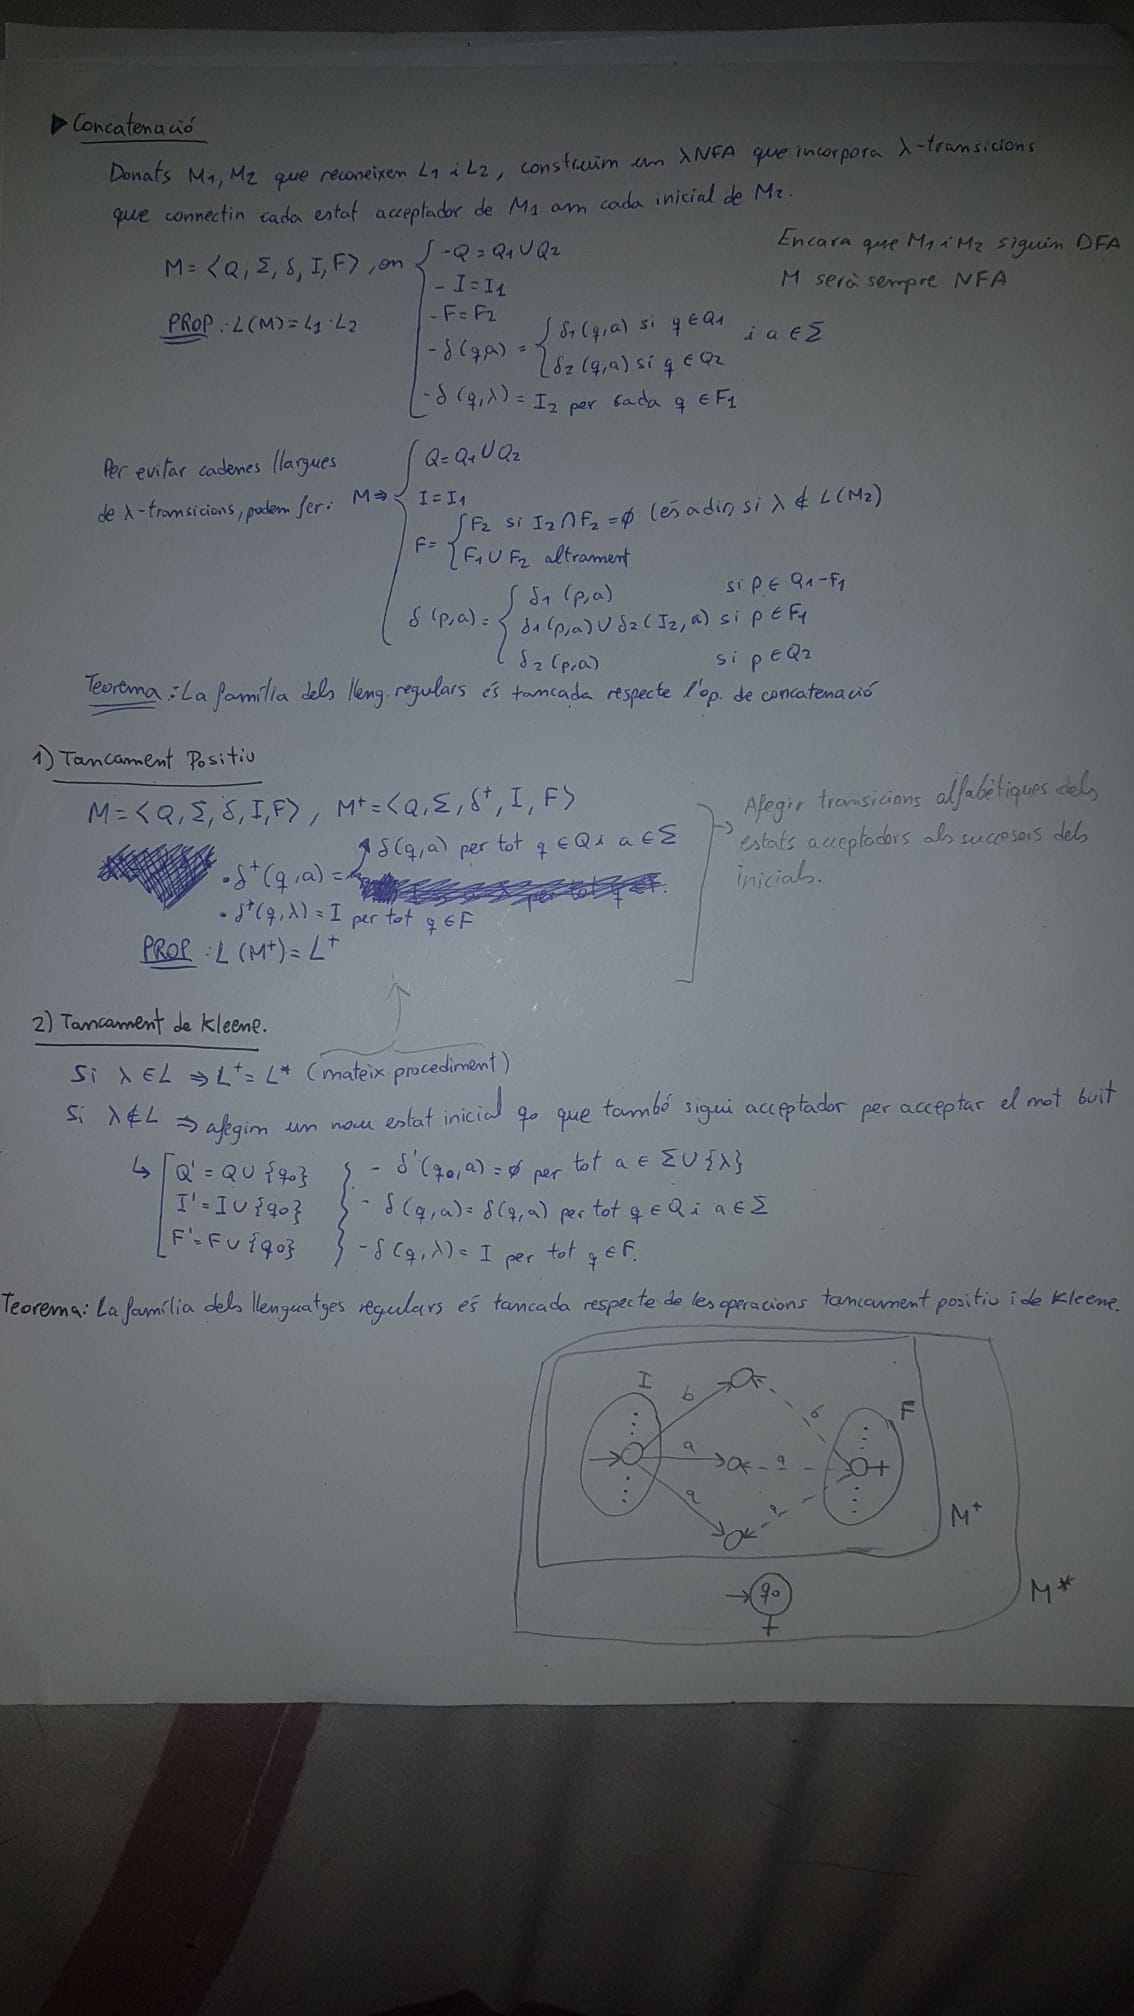 ▶ Concatenació
Donats M1, M2 que reconeixen L1 i L2, construïm un λNFA que incorpora λ-transicions
que connectin cada estat acceptador de M1 am cada inicial de M2.
Encara que M1 i M2 siguin DFA
M serà sempre NFA
M = <Q, Σ, δ, I, F>, on { - Q = Q1 ∪ Q2
- I = I1
- F = F2
PROP.: L(M) = L1 · L2
- δ(q,a) = { δ1(q,a) si q ∈ Q1
δ2(q,a) si q ∈ Q2
i a ∈ Σ
- δ(q,λ) = I2 per cada q ∈ F1
Per evitar cadenes llargues
de λ-transicions, podem fer: M ⇒ { Q = Q1 ∪ Q2
I = I1
F = { F2 si I2 ∩ F2 = ∅ (és a dir, si λ ∉ L(M2)
F1 ∪ F2 altrament
δ(p,a) = { δ1(p,a) si p ∈ Q1 - F1
δ1(p,a) ∪ δ2(I2,a) si p ∈ F1
δ2(p,a) si p ∈ Q2
Teorema: La família dels lleng. regulars és tancada respecte l'op. de concatenació
1) Tancament Positiu
M = <Q, Σ, δ, I, F>, M+ = <Q, Σ, δ+, I, F>
• δ+(q,a) = δ(q,a) per tot q ∈ Q i a ∈ Σ
• δ+(q,λ) = I per tot q ∈ F
PROP: L(M+) = L+
Afegir transicions alfabètiques dels
estats acceptadors als succesors dels
inicials.
2) Tancament de Kleene.
Si λ ∈ L ⇒ L+ = L* (mateix procediment)
Si λ ∉ L ⇒ afegim un nou estat inicial q0 que també sigui acceptador per acceptar el mot buit
↳ [ Q' = Q ∪ {q0} } - δ'(q0,a) = ∅ per tot a ∈ Σ ∪ {λ}
I' = I ∪ {q0} } - δ(q,a) = δ(q,a) per tot q ∈ Q i a ∈ Σ
F' = F ∪ {q0} } - δ(q,λ) = I per tot q ∈ F.
Teorema: La família dels llenguatges regulars és tancada respecte de les operacions tancament positiu i de Kleene.
I
b
b
F
a
a
a
a
M+
q0
M*